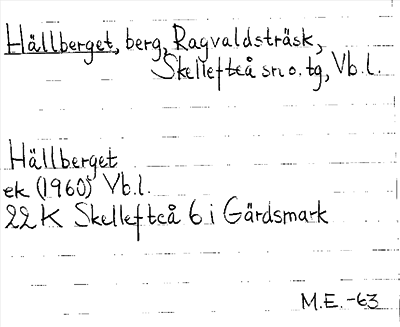 Hällberget, berg, Ragvaldsträsk,
Skellefteå sn o. tg, Vb.l.
Hällberget
ek (1960) Vb.l.
22 K Skellefteå 6 i Gärdsmark
M.E.-63